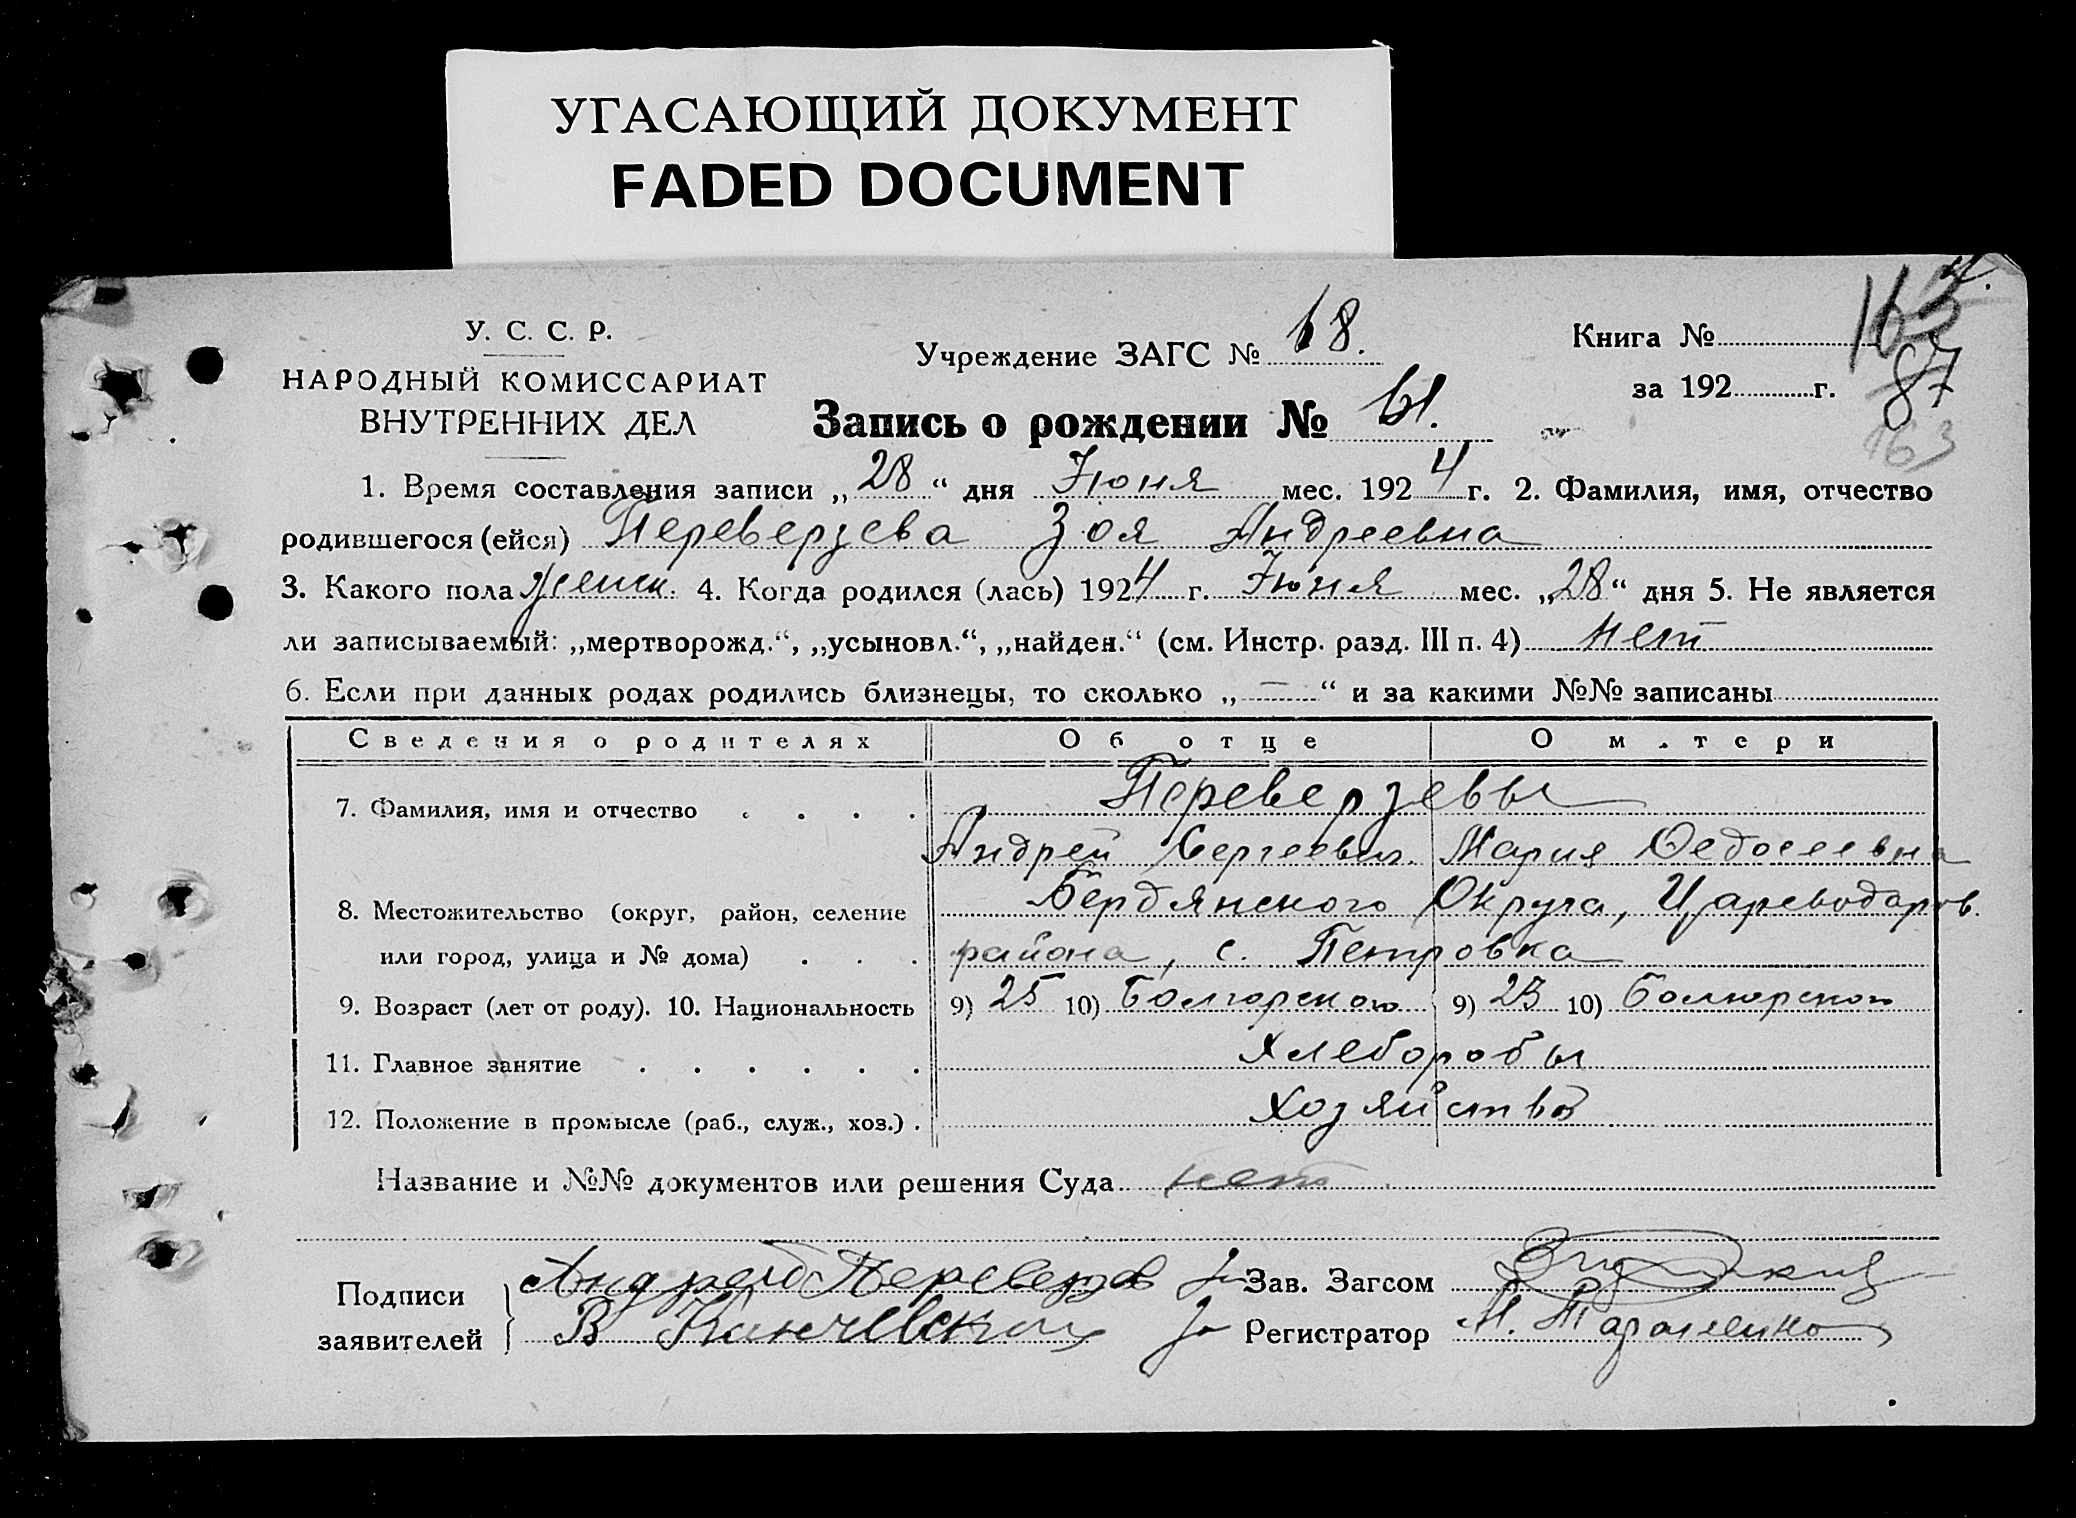 УГАСАЮЩИЙ ДОКУМЕНТ
FADED DOCUMENT
У. С. С. Р.
НАРОДНЫЙ КОМИССАРИАТ
ВНУТРЕННИХ ДЕЛ
Учреждение ЗАГС № 68.
Запись о рождении № 61.
Книга №
за 192 г.
87
163
1. Время составления записи „28“ дня Июня мес. 1924 г. 2. Фамилия, имя, отчество
родившегося (ейся) Переверзева Зоя Андреевна
3. Какого пола женск. 4. Когда родился (лась) 1924 г. Июня мес. „28“ дня 5. Не является
ли записываемый: „мертворожд.“, „усыновл.“, „найден.“ (см. Инстр. разд. III п. 4) нет
6. Если при данных родах родились близнецы, то сколько „—“ и за какими №№ записаны
Сведения о родителях Об отце О м.тери
7. Фамилия, имя и отчество Переверзевы
Андрей Сергеевич. Мария Федосеевна
8. Местожительство (округ, район, селение Бердянского Округа, Цареводаров.
или город, улица и № дома) района, с. Петровка
9. Возраст (лет от роду). 10. Национальность 9) 25 10) Болгарского 9) 23 10) Болгарского
11. Главное занятие Хлеборобы
12. Положение в промысле (раб., служ., хоз.) Хозяйство
Название и №№ документов или решения Суда нет
Подписи заявителей
Андрей Переверзев Зав. Загсом
В Регистратор М.